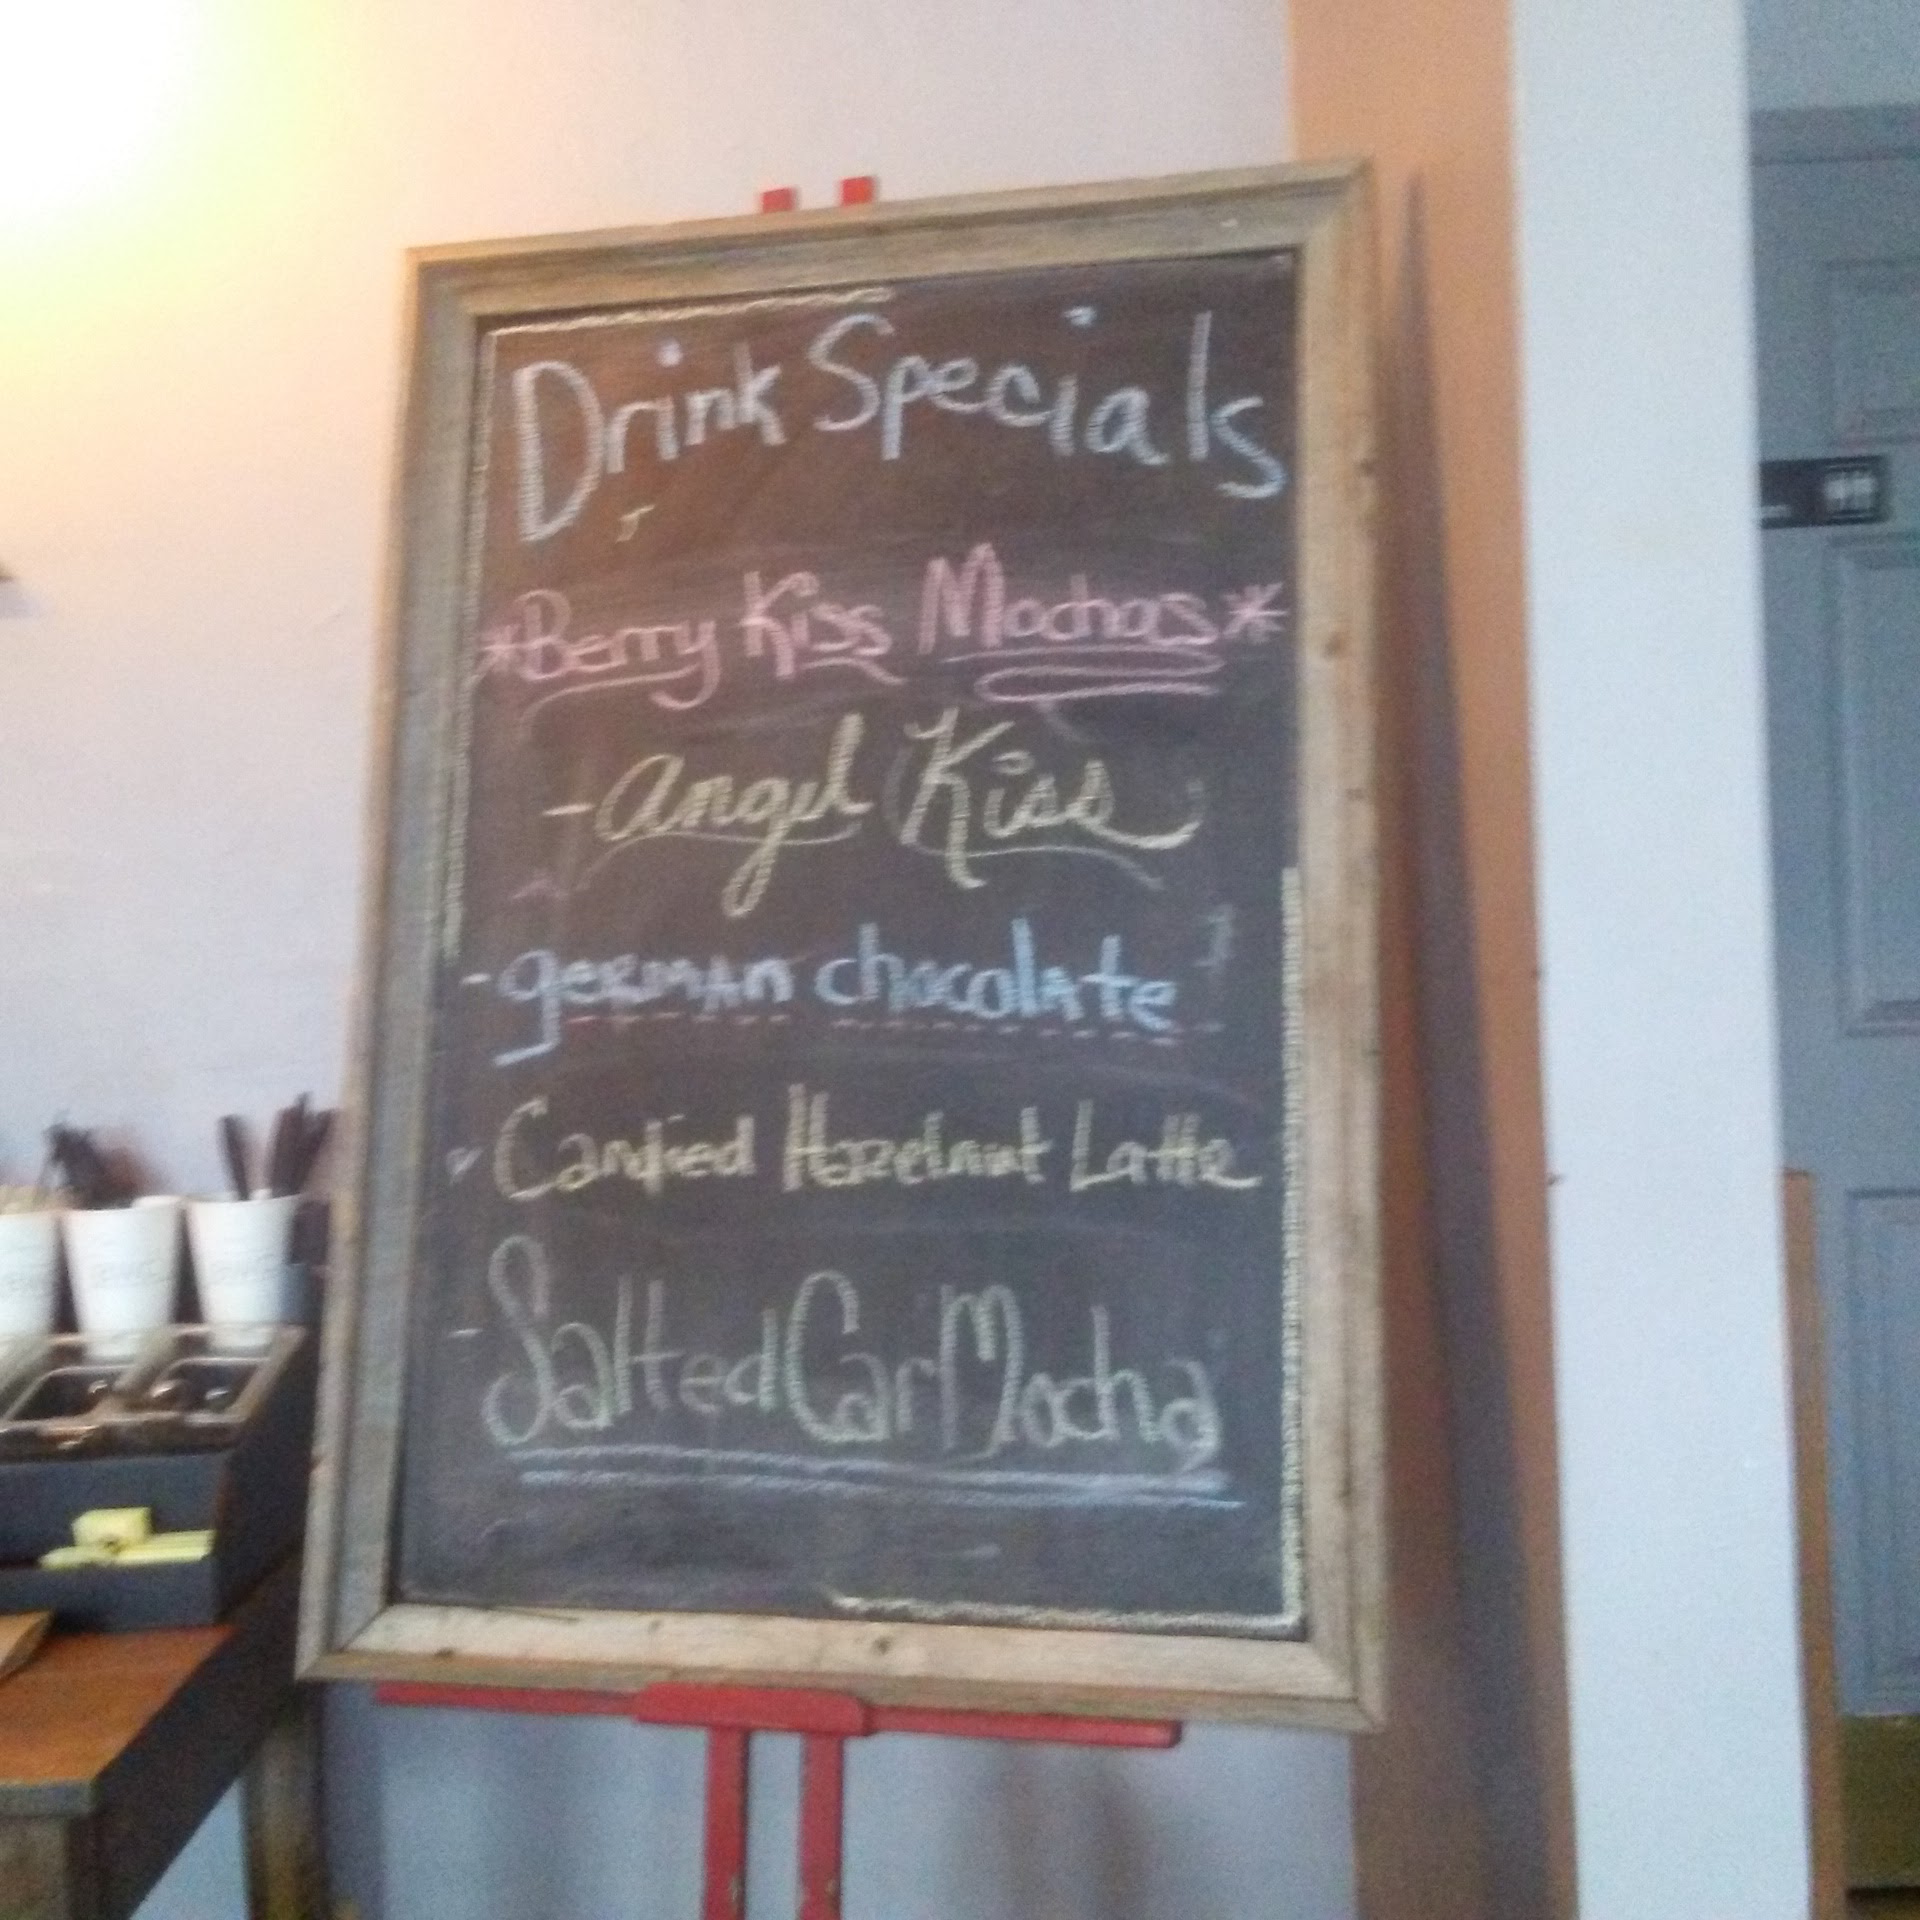 Drink Specials
*Berry Kiss Mochas*
- Angel Kiss
- german chocolate
- Candied Hazelnut Latte
- Salted Car Mocha